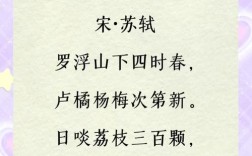 宋·苏轼
罗浮山下四时春，
卢橘杨梅次第新。
日啖荔枝三百颗，